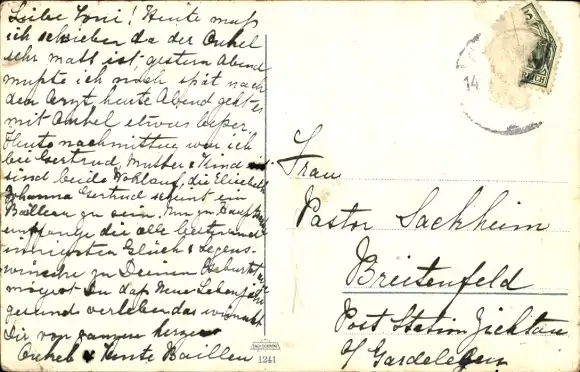 Liebe Toni! Heute muß
ich schreiben da der Onkel
sehr matt ist, gestern Abend
mußte ich noch spät nach
dem Arzt, heute Abend geht es
mit Onkel etwas besser.
Heute nachmittag war ich
bei Gertrud, Mutter & Kind
sind beide Wohlauf, die Elisabeth
Johanna Gertrud scheint ein
Bailleu zu sein. Nun zu
empfange die alle
innigsten Glück & Segens-
wünsche zu Deinem Geburtstage
mögest Du das Neue Lebensjahr
gesund verleben das wünscht
Dir von ganzem herzen
Onkel & Tante Bailleu
1241
5
REICH
14
Frau
Pastor Sackheim
Breitenfeld
Post Station Zichtau
b/ Gardelegen